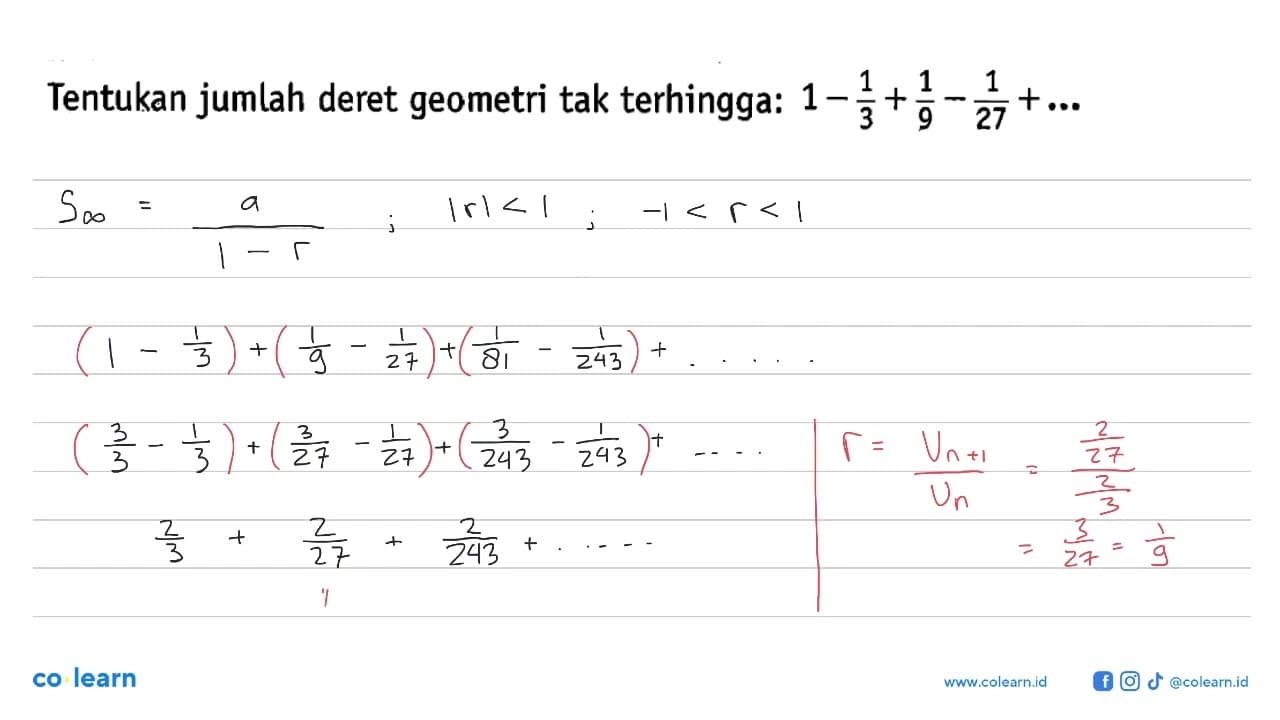 Tentukan jumlah deret geometri tak terhingga: 1 - 1/3 + 1/9 - 1/27 + ...
S∞ = a / (1 - r) ; |r| < 1 ; -1 < r < 1
(1 - 1/3) + (1/9 - 1/27) + (1/81 - 1/243) + . . . . .
(3/3 - 1/3) + (3/27 - 1/27) + (3/243 - 1/293) + ----
2/3 + 2/27 + 2/243 + ......
r = Un+1 / Un = (2/27) / (2/3)
= 3/27 = 1/9
co learn
www.colearn.id
@colearn.id